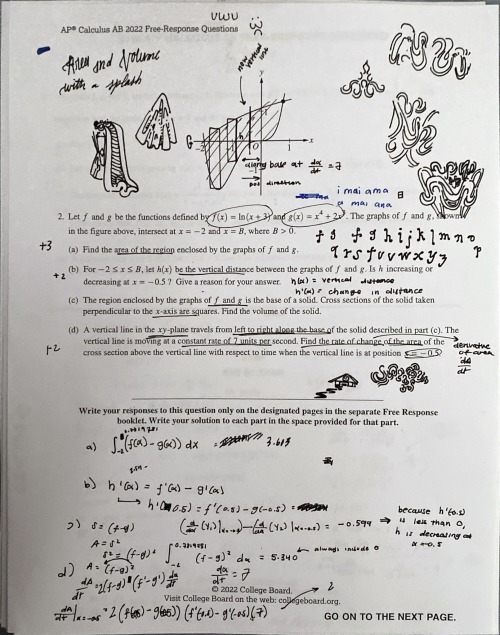 UWU
AP® Calculus AB 2022 Free-Response Questions
Area and Volume
with a splash
vertical
line
y
x
G
h
O
1
along base at dx/dt = 7
direction
i mai ama
a mai ana
2. Let f and g be the functions defined by f(x) = ln(x + 3) and g(x) = x⁴ + 2x³. The graphs of f and g, shown
in the figure above, intersect at x = −2 and x = B, where B > 0.
f g f g h i j k l m n o p
q r s f u v w x y z
+3
(a) Find the area of the region enclosed by the graphs of f and g.
+2
(b) For −2 ≤ x ≤ B, let h(x) be the vertical distance between the graphs of f and g. Is h increasing or
decreasing at x = −0.5 ? Give a reason for your answer.
h(x) = vertical distance
h'(x) = change in distance
(c) The region enclosed by the graphs of f and g is the base of a solid. Cross sections of the solid taken
perpendicular to the x-axis are squares. Find the volume of the solid.
(d) A vertical line in the xy-plane travels from left to right along the base of the solid described in part (c). The
vertical line is moving at a constant rate of 7 units per second. Find the rate of change of the area of the
cross section above the vertical line with respect to time when the vertical line is at position x = −0.5.
+2
derivative
of area
dA/dt
Write your responses to this question only on the designated pages in the separate Free Response
booklet. Write your solution to each part in the space provided for that part.
a) ∫₋₂ (f(x) − g(x)) dx = 3.603
b) h'(x) = f'(x) − g'(x)
h'(-0.5) = f'(-0.5) − g'(-0.5) =
(d/dx (y₁)|x=-0.5) − (d/dx (y₂)|x=-0.5) = −0.599
because h'(-0.5)
is less than 0,
h is decreasing at
x = -0.5
c) s = (f-g)
A = s²
s² = (f-g)²
(f-g)² dx = 5.340
always include
d) A = (f-g)²
dA/dt = 2(f-g)(f'-g') dx/dt
dx/dt = 7
© 2022 College Board.
Visit College Board on the web: collegeboard.org.
dA/dt|x=-0.5 = 2(f(-0.5) − g(-0.5))(f'(-0.5) − g'(-0.5))(7)
2
GO ON TO THE NEXT PAGE.